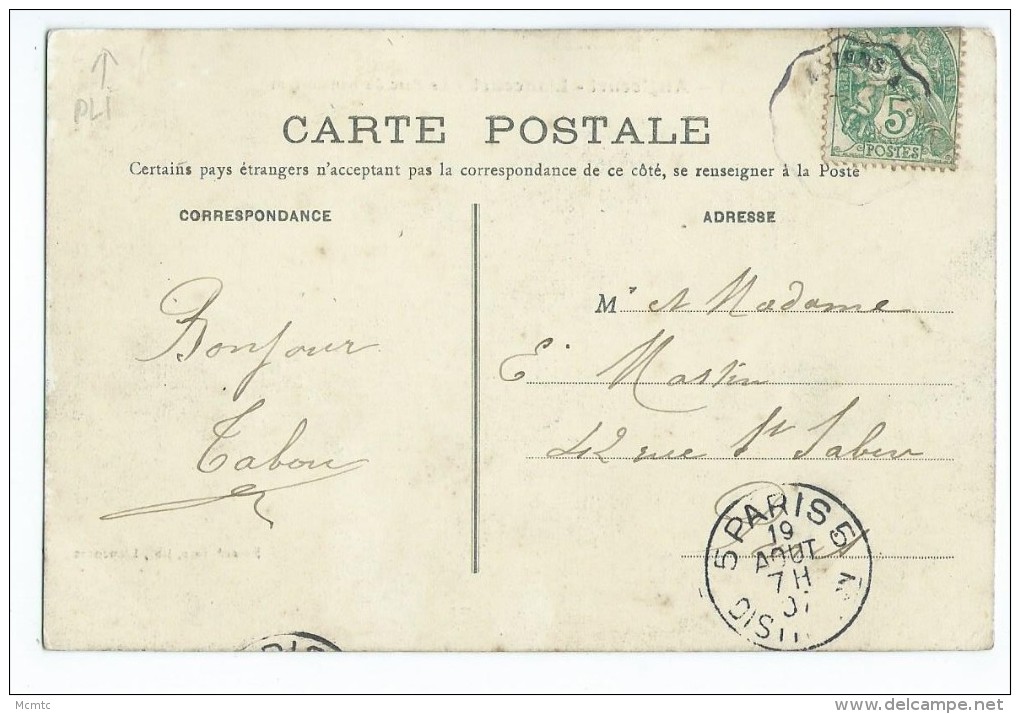 PLI
CARTE POSTALE
Certains pays étrangers n'acceptant pas la correspondance de ce côté, se renseigner à la Poste
5c
POSTES
CORRESPONDANCE
Bonjour
Tabou
ADRESSE
Mr et Madame
E. Martin
42 rue St Sabin
5 PARIS 5
19
AOUT
7H
07
DISTR
Mcmtc
delcampe.net